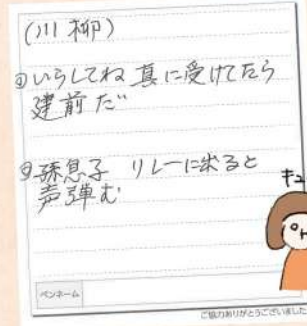 (川柳)
②いらしてね 真に受けてたら
建前だ
③孫息子 リレーに出ると
声弾む
キュ
ペンネーム
ご協力ありがとうございました